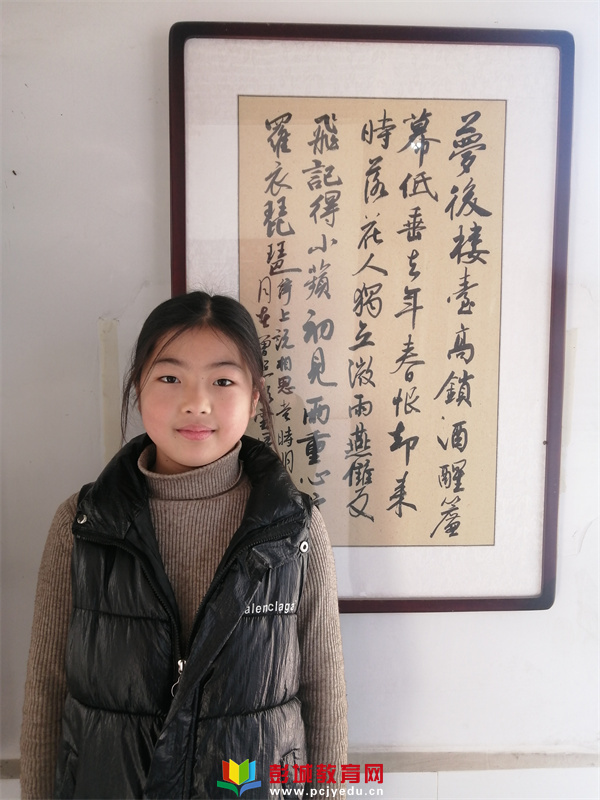 夢後樓臺高鎖酒醒簾
幕低垂去年春恨却来
時落花人獨立微雨燕雙
飛記得小蘋初見兩重心
羅衣琵琶弦上说相思當時明
月在曾照
alenclaga
彭城教育网
www.pcjyedu.cn